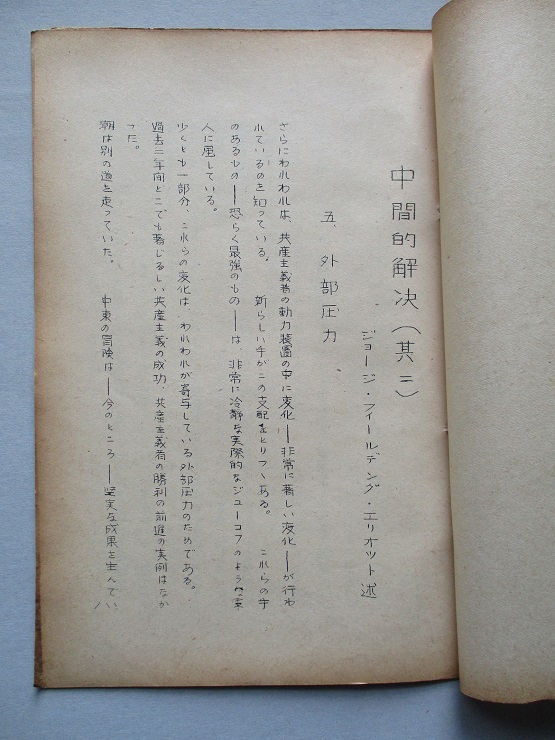 中間的解决（其三）
ジョージ・フィールデング・エリオット述
五、外部圧力
さらにわれわれは、共産主義者の動力装置の中に変化——非常に著しい変化——が行わ
れているのを知っている。 新らしい手がこの支配をとりつゝある。 これらの手
のあるもの——恐らく最強のもの——は、非常に冷静な実際的なジューコフのような軍
人に属している。
少くとも一部分、これらの変化は、われわれが寄与している外部圧力のためである。
過去三年間どこでも著じるしい共産主義の成功、共産主義者の勝利の前進の実例はなか
った。
潮は別の道を走っていた。 中東の冒険は——今のところ——堅実な成果を生んでい